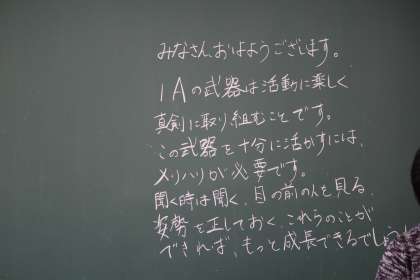 みなさん、おはようございます。
1Aの武器は活動に楽しく
真剣に取り組むことです。
この武器を十分に活かすには、
メリハリが必要です。
聞く時は聞く、目の前の人を見る、
姿勢を正しておく、これらのことが
できれば、もっと成長できるでしょう!